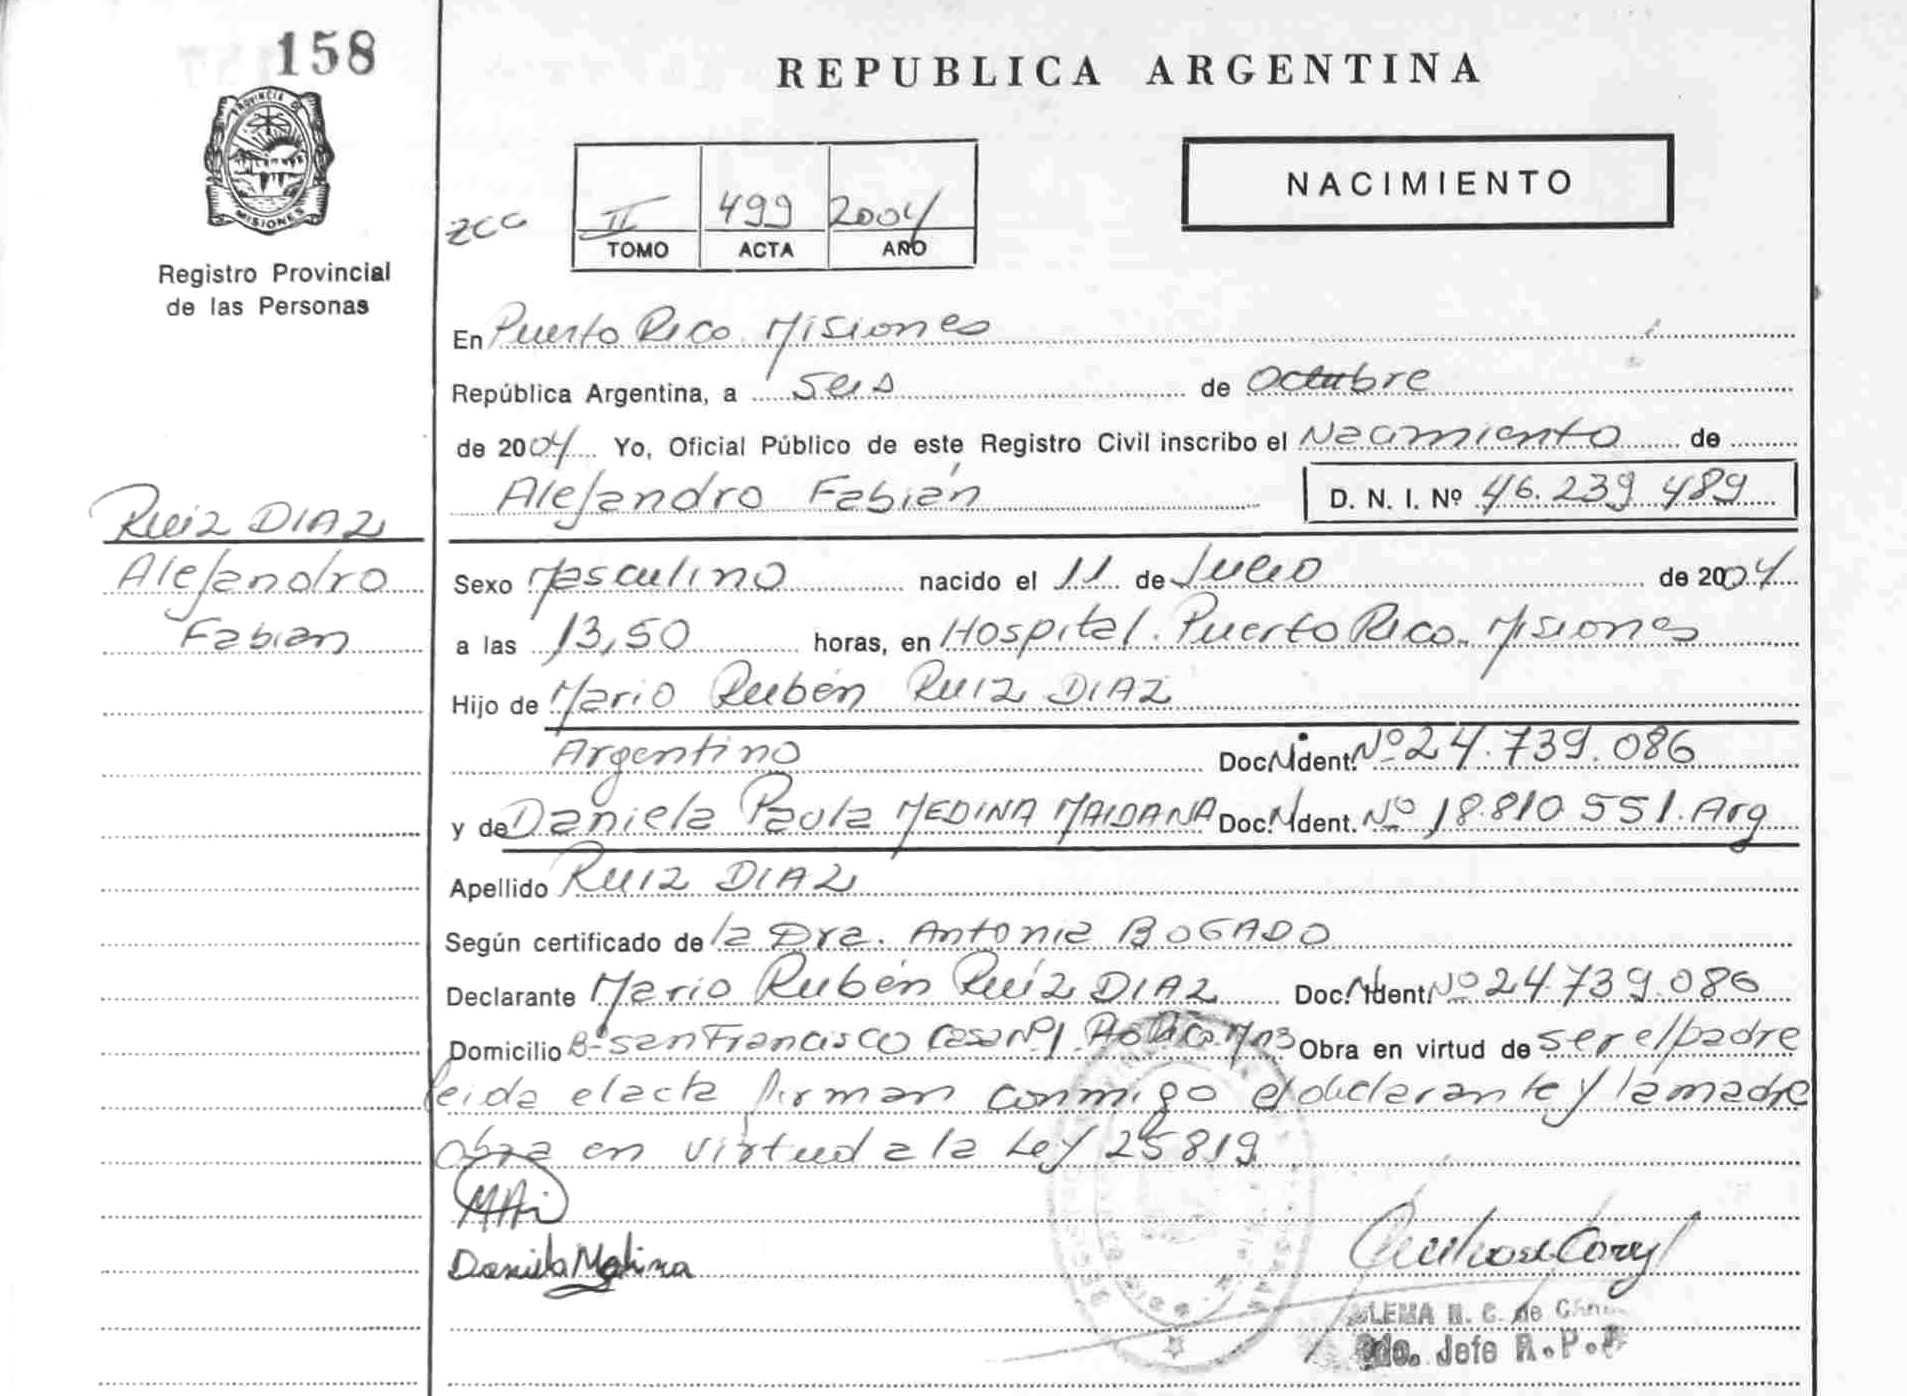 158
REPUBLICA ARGENTINA
PROVINCIA DE
MISIONES
NACIMIENTO
II 499 2004
TOMO ACTA AÑO
Registro Provincial
de las Personas
En Puerto Rico. Misiones
República Argentina, a seis de Octubre
de 2004 Yo, Oficial Público de este Registro Civil inscribo el Nacimiento de
Alejandro Fabián D. N. I. Nº 46.239 489
RUIZ DIAZ
Alejandro
Fabian
Sexo Masculino nacido el 11 de Julio de 2004
a las 13,50 horas, en Hospital. Puerto Rico. Misiones
Hijo de Mario Rubén RUIZ DIAZ
Argentino Doc. Ident. Nº 24.739.086
y de Daniela Paula MEDINA MAIDANA Doc. Ident. Nº 18.810 551. Arg
Apellido RUIZ DIAZ
Según certificado de la Dra. Antonia BOGADO
Declarante Mario Rubén Ruíz DIAZ Doc. Ident. Nº 24.739.086
Domicilio Bº San Francisco Casa Nº 1. Obra en virtud de ser el padre
leida el acta firman conmigo el declarante y la madre
obra en virtud a la Ley 25819
Daniela
de
2do. Jefe R.P.P